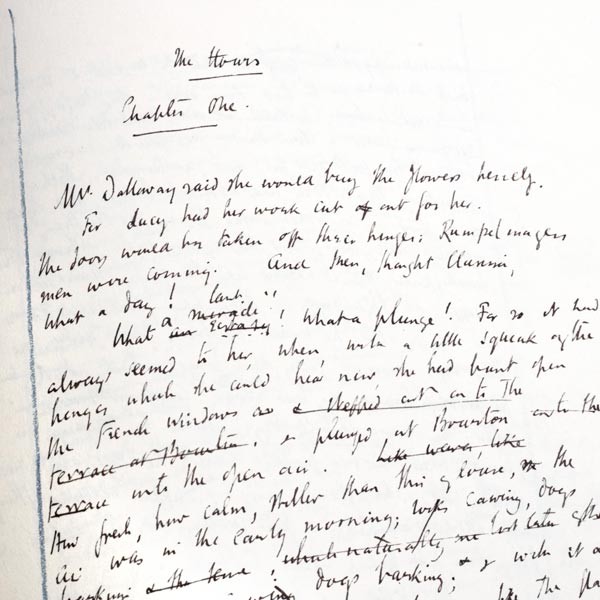 The Hours
Chapter One.
Mrs. Dalloway said she would buy the flowers herself.
For Lucy had her work cut out for her.
The doors would be taken off their hinges; Rumpelmayers
men were coming. And then, thought Clarissa,
What a day!
What a miracle an ecstasy! What a plunge! For so it had
always seemed to her when, with a little squeak of the
henges which she could hear now she had burst open
the French windows & stepped out on to the
terrace at Bourton, & plunged at Bourton onto the
terrace into the open air. Like waves, like
How fresh, how calm, stiller than this of course, the
air was in the early morning; rooks cawing, dogs
barking & the
dogs barking; & with it
the